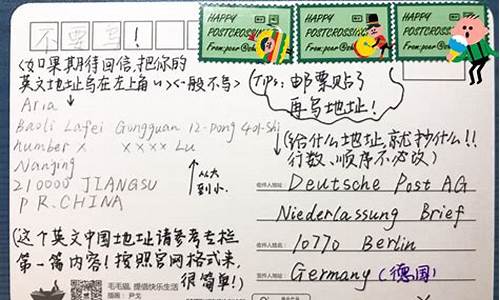 HAPPY
POSTCROSSING
HAPPY
POSTCROSSING
HAPPY
POSTCROSSING
不要写！
(如果期待回信，把你的
英文地址写在左上角
一般不写)
(Tips: 邮票贴了
再写地址！
Aria
Baoli Lafei Gongguan 12-Dong 401-Shi
number x xxxx Lu
Nanjing
210000 JIANGSU
P R.CHINA
从大
到小.
(给什么地址，就抄什么!!
行数、顺序不必改)
收件人地址:
Deutsche Post AG
Niederlassung Brief
收件人地址:
10770 Berlin
收件人姓名:
Germany (德国)
(这个英文中国地址请参考专栏
第一篇内容！按照官网格式来，
很简单！)
毛毛猫，提倡快乐生活
插画：尹戈